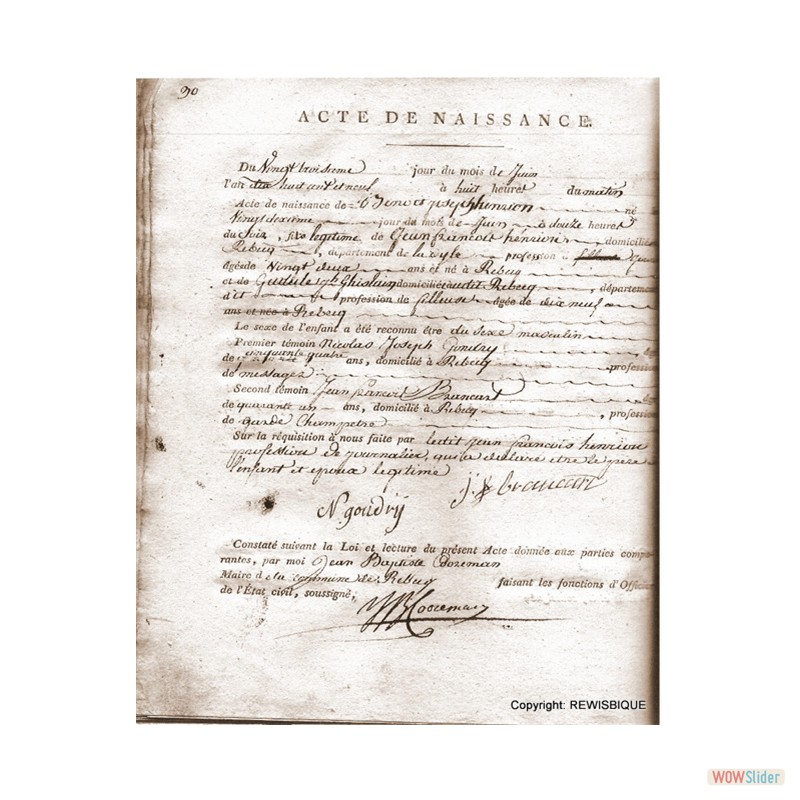 90
ACTE DE NAISSANCE.
Du Vingt troisieme jour du mois de Juin
l'an dix huit cent et neuf à huit heures du matin
Acte de naissance de Benoit joseph henrion né
Vingt deuxieme jour du mois de Juin à douze heures
du Soir, fils legitime de Jean francois henrion domicilié
Rebecq, département de la Dyle profession
âgé de vingt deux ans et né à Rebecq
et de Gudule Ghislain domiciliée audit Rebecq, département
d'it profession de fileuse âgée de dix neuf
ans et née à Rebecq
Le sexe de l'enfant a été reconnu être du sexe masculin
Premier témoin Nicolas Joseph Goudry
de cinquante quatre ans, domicilié à Rebecq, profession
de messager
Second témoin Jean francois Brancart
de quarante un ans, domicilié à Rebecq, profession
de garde Champetre
Sur la réquisition à nous faite par ledit jean francois henrion
profession de journalier, qui a declaré etre le pere
l'enfant et epoux legitime
j. f brancart
N goudrÿ
Constaté suivant la Loi et lecture du présent Acte donnée aux parties compa-
rantes, par moi Jean Baptiste Cozeman
Maire d ela commune de Rebecq faisant les fonctions d'Officier
de l'État civil, soussigné,
Copyright: REWISBIQUE
WOWSlider